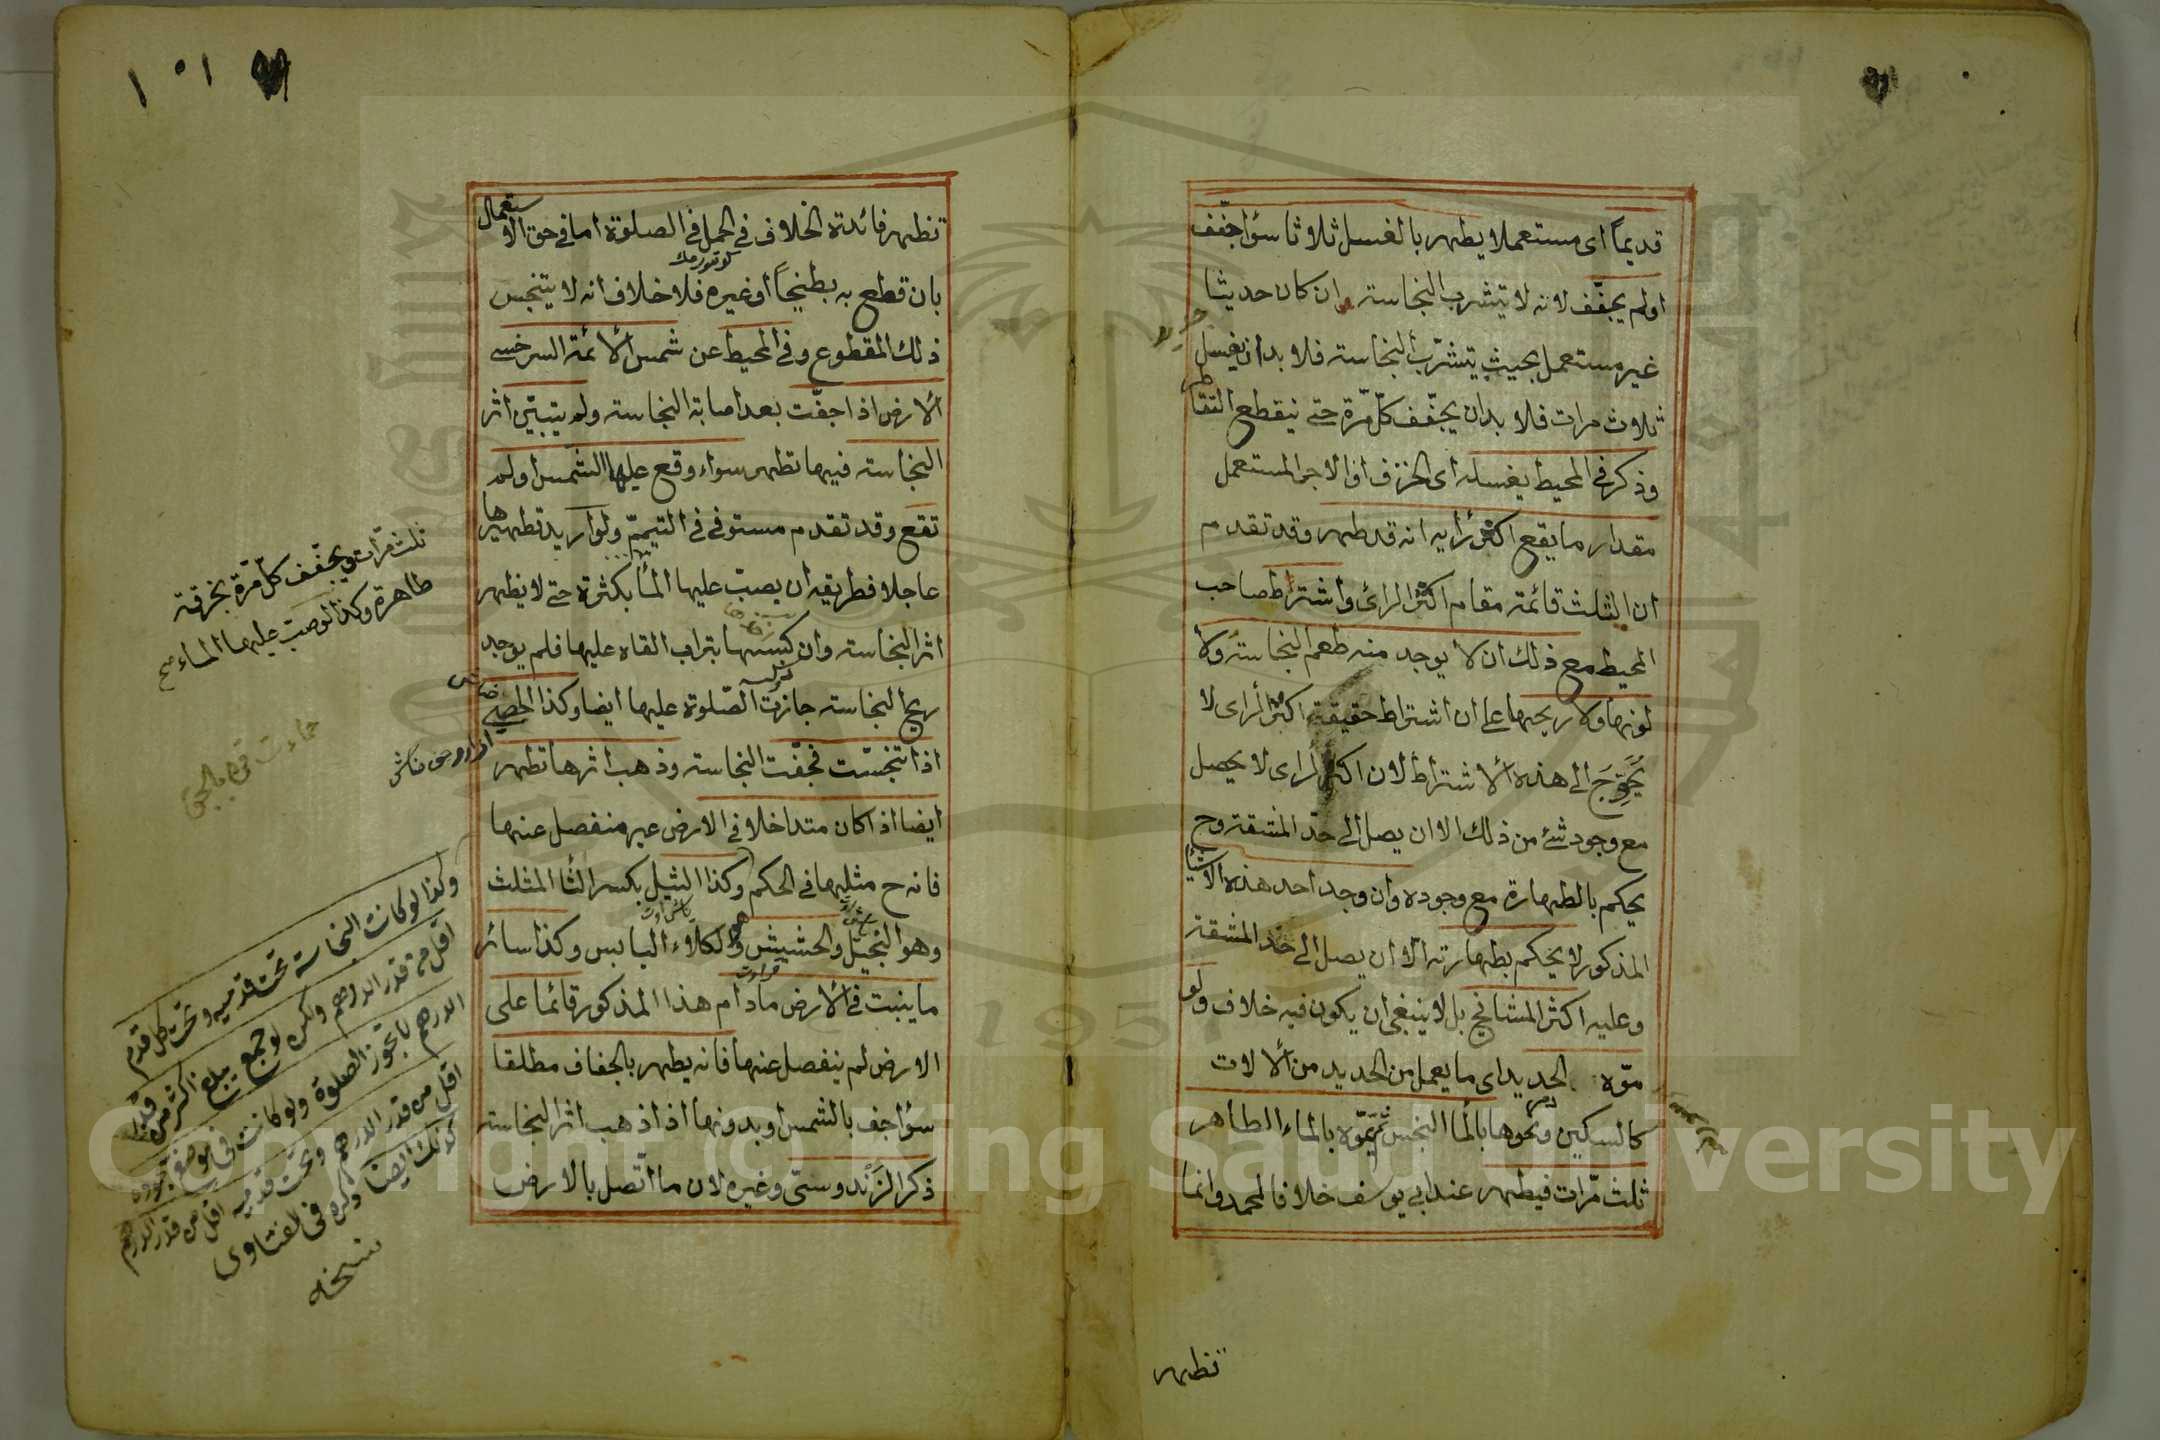 قديماً اى مستعملا يطهر بالغسل ثلاثا سوٓاجفّف
اولم يجفّف لانه لا يتشرب النجاسة وان كان حديثا
غير مستعمل بحيث يتشرّب النجاسة فلا بد ان يغسل
ثلاث مرات فلا بد ان يجفّف كلّ مرّة حتى ينقطع التقاطر
وذكر فى المحيط يغسله اى الخزف او الاجر المستعمل
مقدار ما يقع اكثر رأيه انه قد طهر وقد تقدم
ان الثلث قائمة مقام اكثر الرائ واشتراط صاحب
المحيط مع ذلك ان لا يوجد منه طعم النجاسة ولا
لونها ولا ريحها على ان اشتراط حقيقة اكثر الراى لا
يُحَوِّجَ الى هذه الاشتراط لان اكثر الراى لا يحصل
مع وجود شئ من ذلك الا ان يصل الى حدّ المشقة وح
يحكم بالطهارة مع وجوده وان وجد احد هذه الاشيا
المذكور لا يحكم بطهارته الا ان يصل الى حد المشقة
وعليه اكثر المشائخ بل لا ينبغى ان يكون فيه خلاف ولو
موّه الحديد اى ما يعمل من الحديد من الالات
كالسكين ونحوها بالمٓا النجس ثم يموّه بالماء الطاهر
ثلث مرّات فيطهر عند ابى يوسف خلافا لمحمد وانما
تظهر
١٠١
تظهر فائدة الخلاف فى الحمل فى الصلوة اما فى حق الاستعمال
بان قطع به بطيخاً او غيره فلا خلاف انه لا يتنجس
ذلك المقطوع وفى المحيط عن شمس الائمة السرخسى
الارض اذا جفّت بعد اصابة النجاسة ولم يتبيّن اثر
النجاسة فيها تطهر سواء وقع عليها الشمس اولم
تقع وقد تقدم مستوفى فى التيمّم ولو اريد تطهيرها
عاجلا فطريقه ان يصبّ عليها المٓا بكثرة حتى لا يظهر
اثر النجاسة وان كبسها بتراب القاه عليها فلم يوجد
ريح النجاسة جازت الصّلوة عليها ايضا وكذا الحصى
اذا تنجسّت فجفّت النجاسة وذهب اثرها تطهر
ايضا اذا كان متداخلا فى الارض غير منفصل عنها
فانه ح مثلها فى الحكم وكذا الثيل بكسر الثا المثلث
وهو النجيل والحشيش وهو الكلاء اليابس وكذا سائر
ما ينبت فى الارض مادام هذا المذكور قائما على
الارض لم ينفصل عنها فانه يطهر بالجفاف مطلقا
سوٓا جف بالشمس او بدونها اذا ذهب اثر النجاسة
ذكر الزَندوستى وغيره لان ما اتّصل بالارض
ثلث مرّات ويجفّف كلّ مرّة بخرقة
طاهرة وكذا لو صبّ عليها الماء صح
وكذا لو كانت النجاسة تحت قدميه وتحت كل قدم
اقل من قدر الدرهم ولكن لو جمع يبلغ اكثر من قدر
الدرهم لا تجوز الصلوة ولو كانت فى موضع سجوده
اقل من قدر الدرهم وتحت قدميه اقل من قدر الدرهم
كذلك ايضا ذكره فى الفتاوى
نسخه